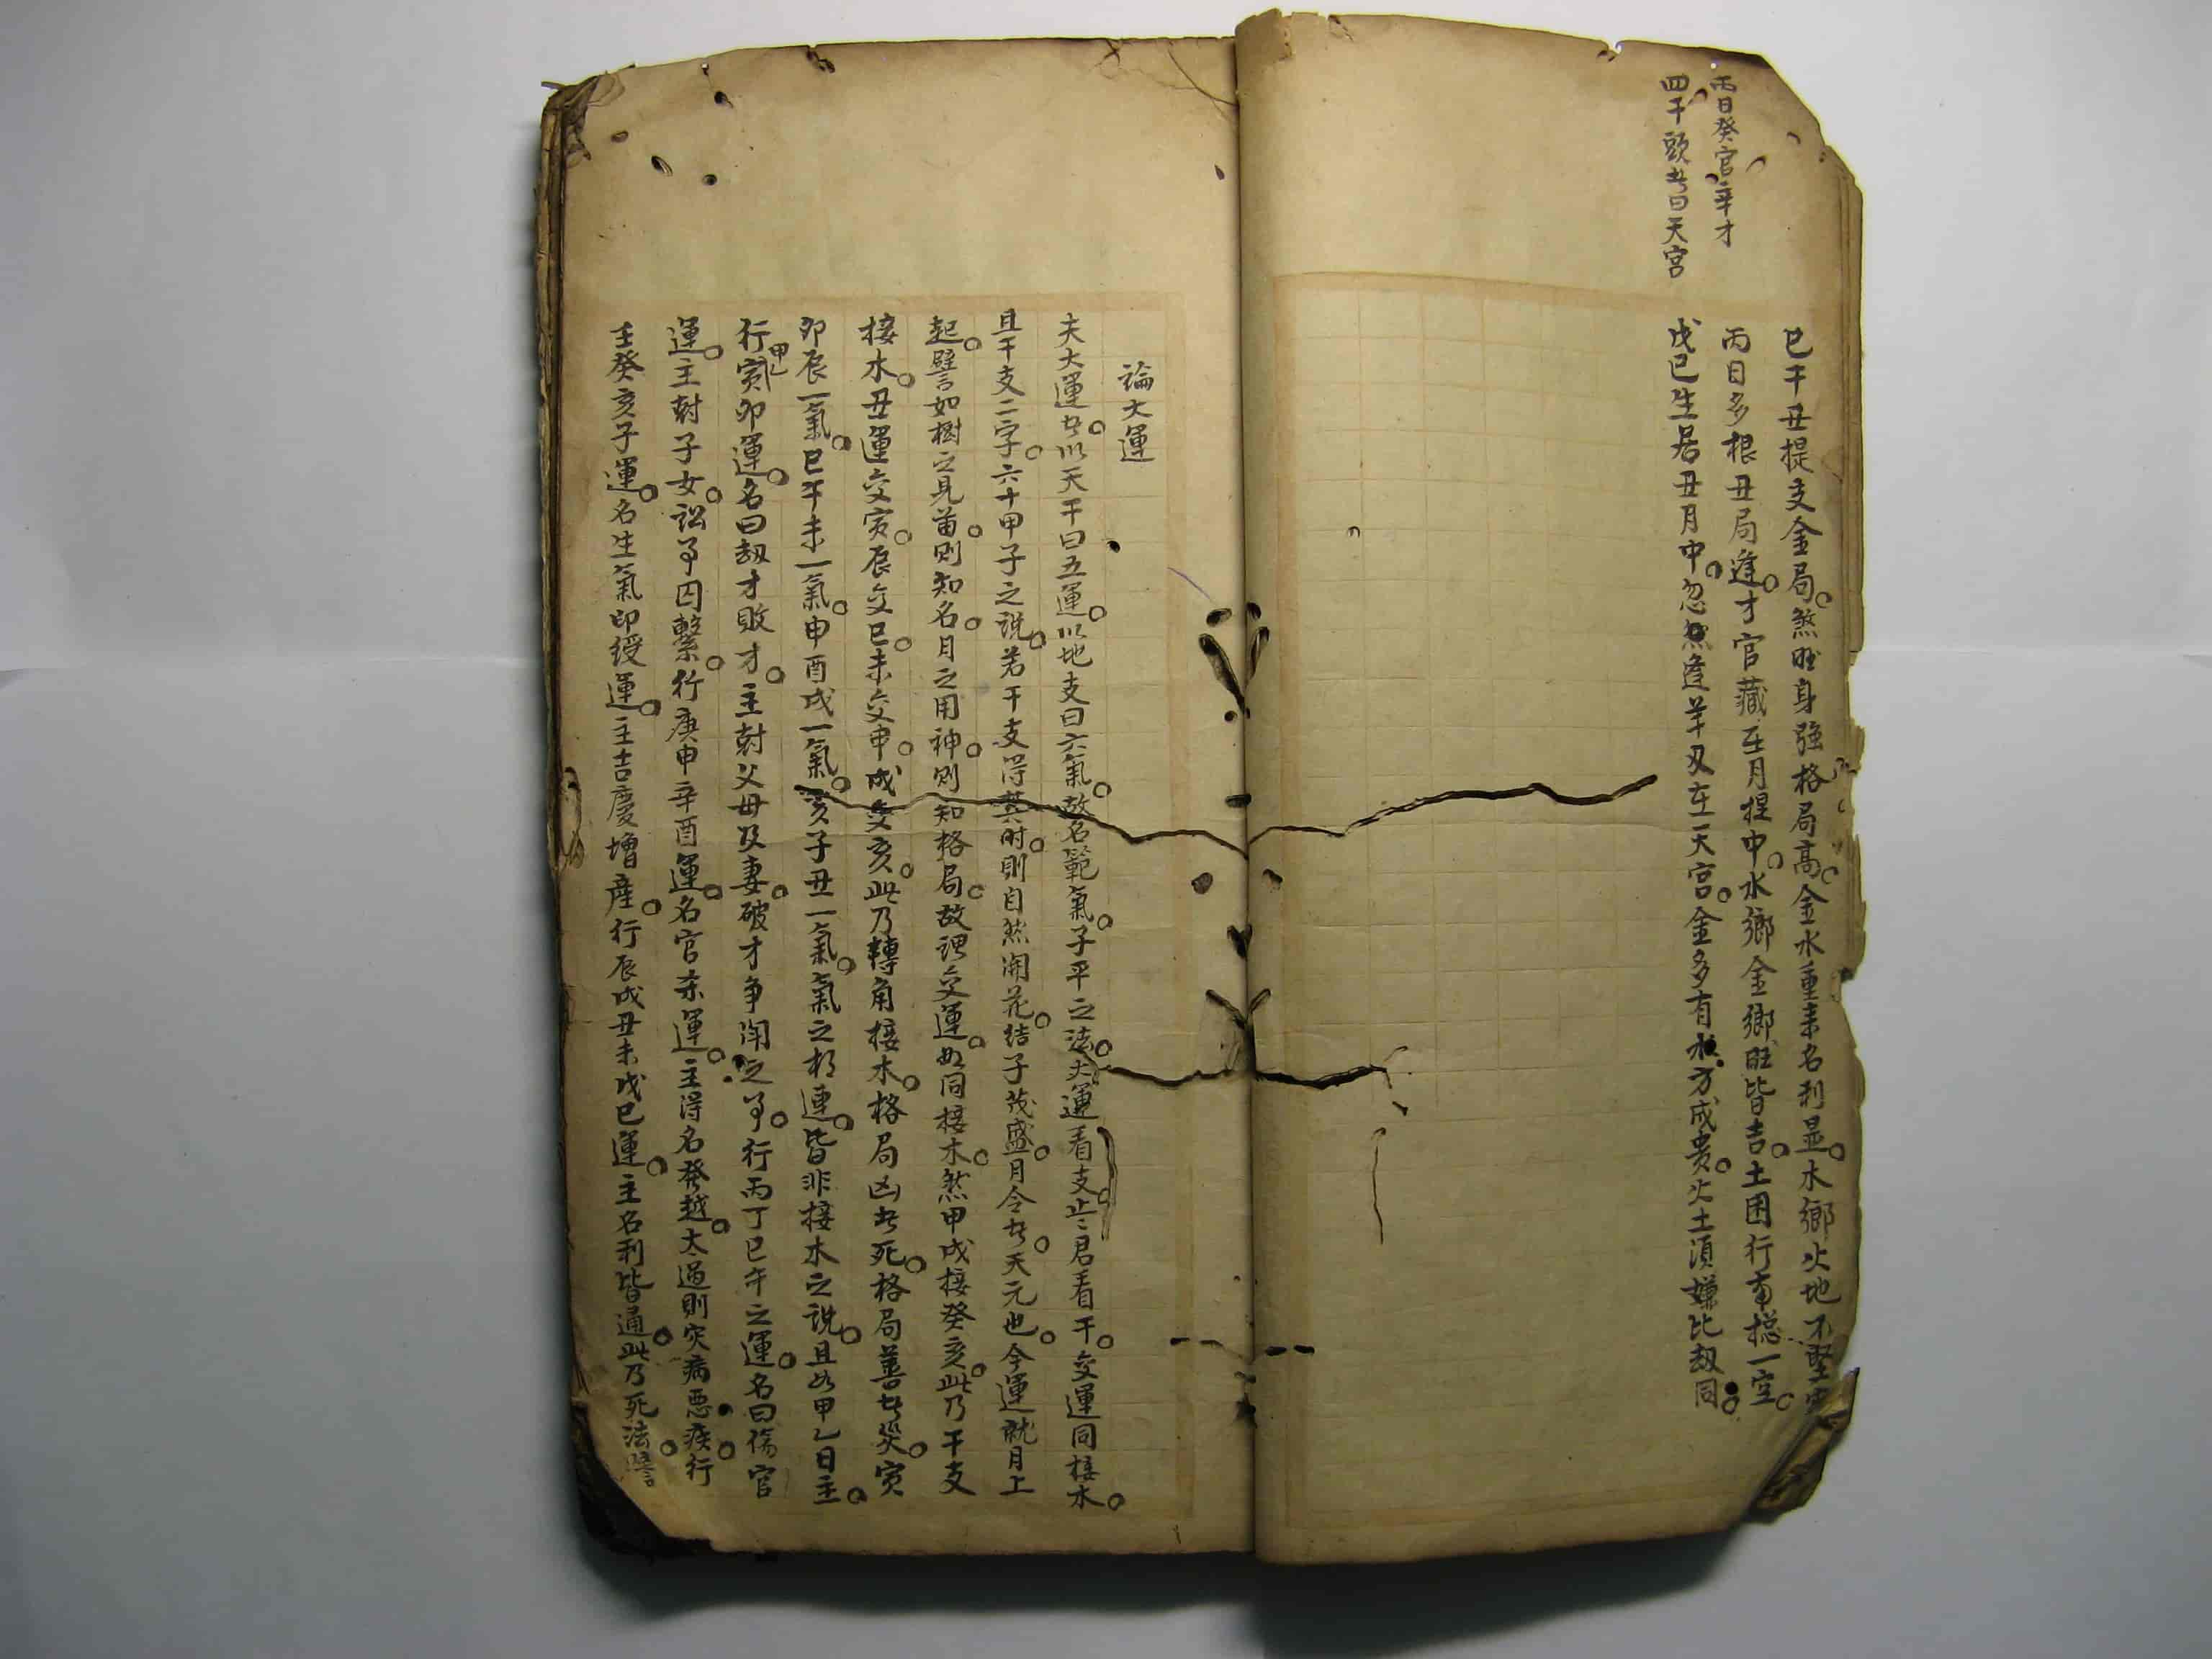 丙日癸官辛才
四干頭者曰天宮
巳干丑提支金局煞旺身强格局高金水重来名利显水鄉火地不堅牢
丙日多根丑局逢才官藏在月提中水鄉金鄉旺皆吉土困行南揔一空
戊巳生居丑月中忽然逢羊刃在天宫金多有水方成贵火土須嫌比刼同
論大運
夫大運者以天干曰五運以地支曰六氣故名範氣子平之法大運看支止〻君看干交運同接木
且干支二字六十甲子之説若干支得其时則自然開花结子茂盛月令者天元也今運就月上
起譬如樹之見苗则知名月之用神则知格局故谓交運如同接木煞甲戌接癸亥此乃干支
接木丑運交寅辰交巳未交申戌交亥此乃轉角接木格局凶者死格局善者災寅
卯辰一氣巳午未一氣申酉戌一氣亥子丑一氣氣之相連皆非接木之説且如甲乙日主
行甲乙寅卯運名曰刼才敗才主尅父母及妻破才争閗之事行丙丁巳午之運名曰傷官
運主尅子女訟事囚繫行庚申辛酉運名官杀運主得名發越太過則灾病惡疾行
壬癸亥子運名生氣印绶運主吉慶增産行辰戌丑未戊巳運主名利皆通此乃死法譬